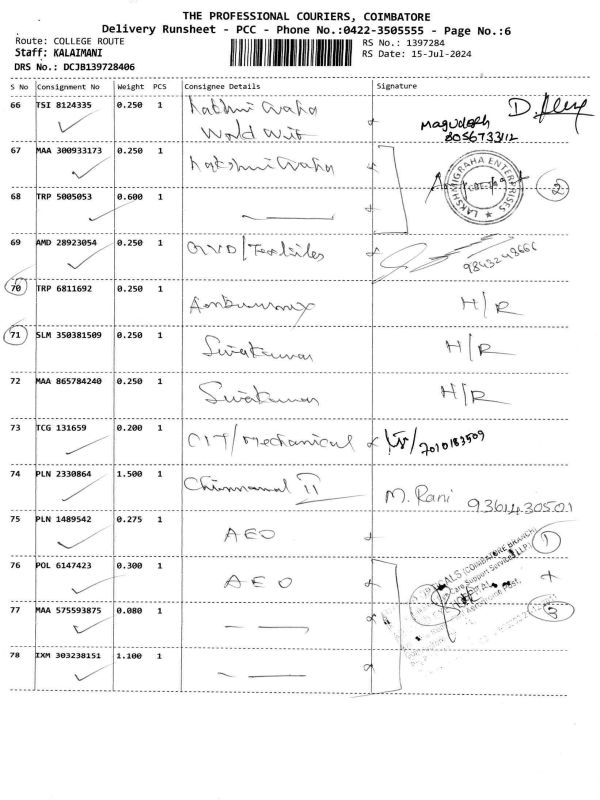 THE PROFESSIONAL COURIERS, COIMBATORE
Delivery Runsheet - PCC - Phone No.:0422-3505555 - Page No.:6
Route: COLLEGE ROUTE
RS No.: 1397284
Staff: KALAIMANI
RS Date: 15-Jul-2024
DRS No.: DCJB139728406
S No Consignment No Weight PCS Consignee Details Signature
66 TSI 8124335 0.250 1
World
Magudesh
8056733112
67 MAA 300933173 0.250 1
LAKSHMIGRAHA ENTERPRISES
2
68 TRP 5005053 0.600 1
69 AMD 28923054 0.250 1 GVD/Textiles
9843248666
70 TRP 6811692 0.250 1 H/R
71 SLM 350381509 0.250 1 Sivakumar H/R
72 MAA 865784240 0.250 1 Sivakumar H/R
73 TCG 131659 0.200 1 CIT/Mechanical 7010183509
74 PLN 2330864 1.500 1 Chinnamal II M. Rani 9361430501
75 PLN 1489542 0.275 1 AEO 1
76 POL 6147423 0.300 1 AEO +
77 MAA 575593875 0.080 1 3
78 IXM 303238151 1.100 1